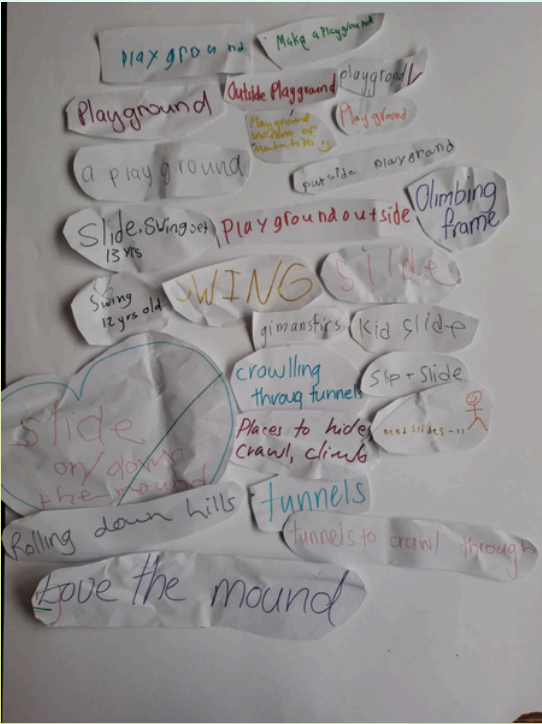 playground
Make a Playground
Playground
Outside Playground
playground
Playground
Playground
a playground
outside playgrand
Slide, Swing set
13 yrs
Playground outside
Climbing
frame
Swing
12 yrs old
SWING
Slide
gimanstics
Kid Slide
crawlling
throug tunnels
Slip + Slide
Slide
on/down
the mound
Places to hide
crawl, climb
need slides
Rolling down hills
tunnels
tunnels to crawl through
Love the mound